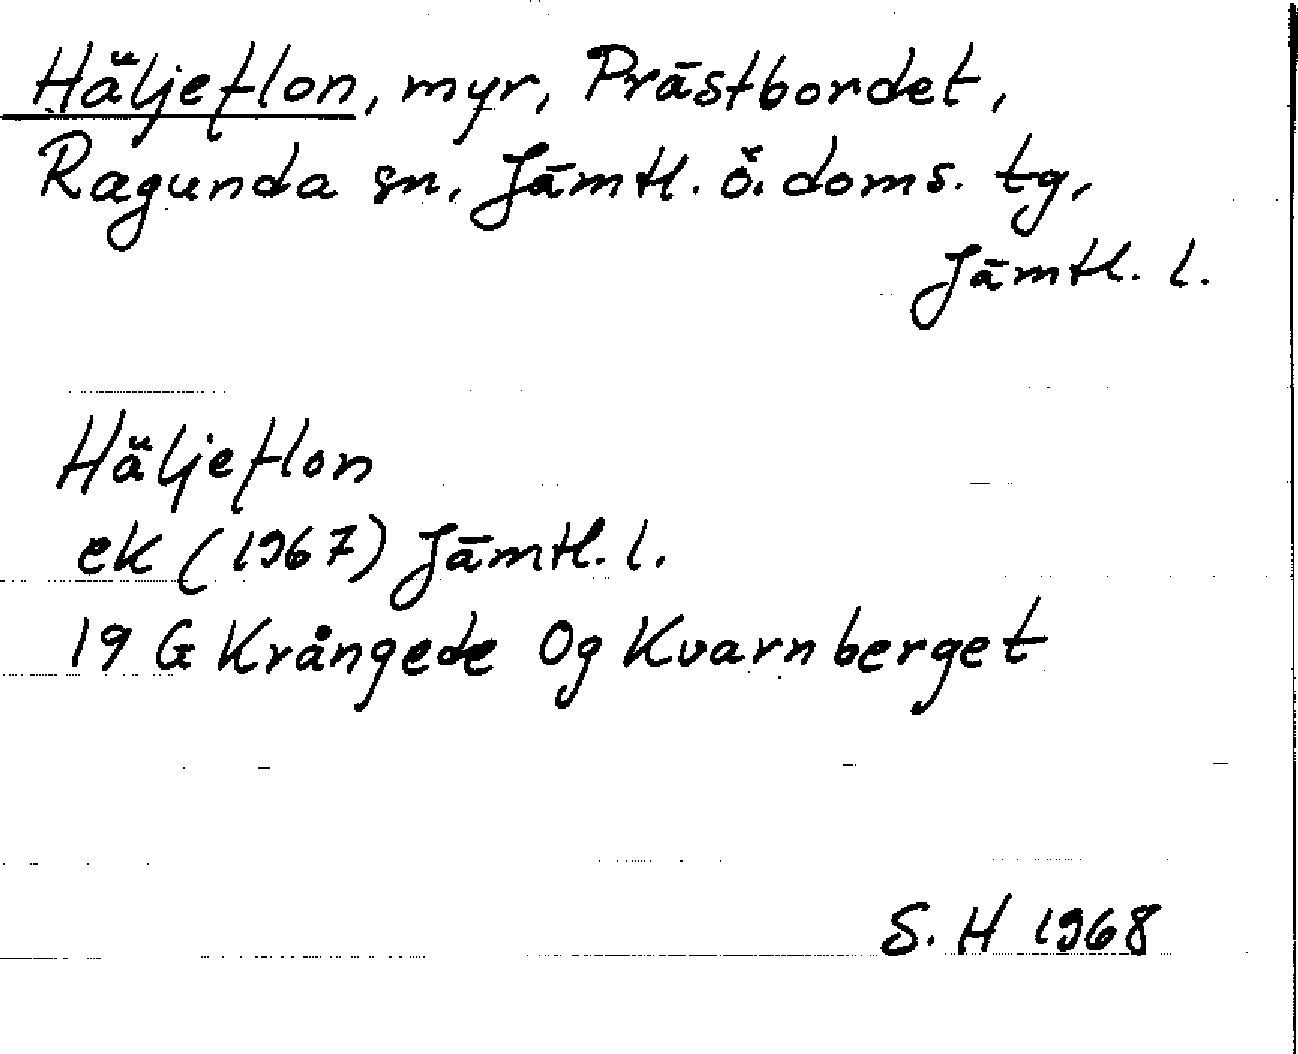 Häljeflon, myr, Prästbordet,
Ragunda sn, Jämtl. ö. doms. tg,
Jämtl. l.
Häljeflon
ek (1967) Jämtl. l.
19 G Krångede 0g Kvarnberget
S. H 1968